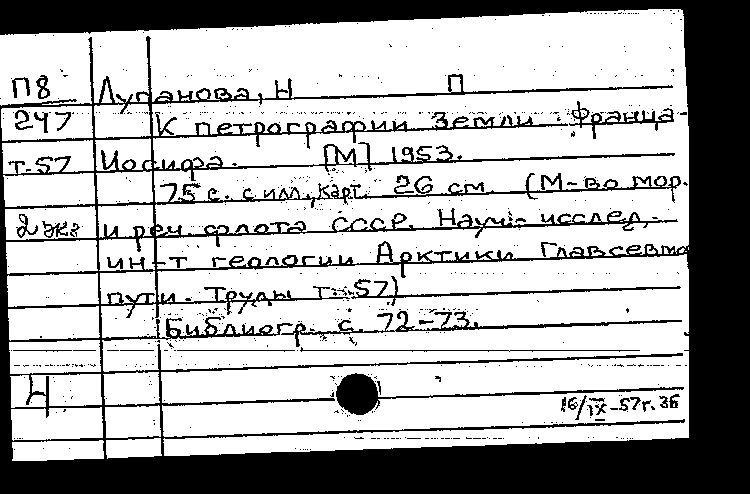 П8 Лупанова, Н П
247 К петрографии Земли Франца-
т.57 Иосифа. [М] 1953.
75 с. с илл., карт. 26 см. (М-во мор.
2 экз и реч. флота СССР. Науч.-исслед.
ин-т геологии Арктики Главсевмо
пути. Труды т. 57)
Библиогр. с. 72-73.
Н
16/IX-57г.